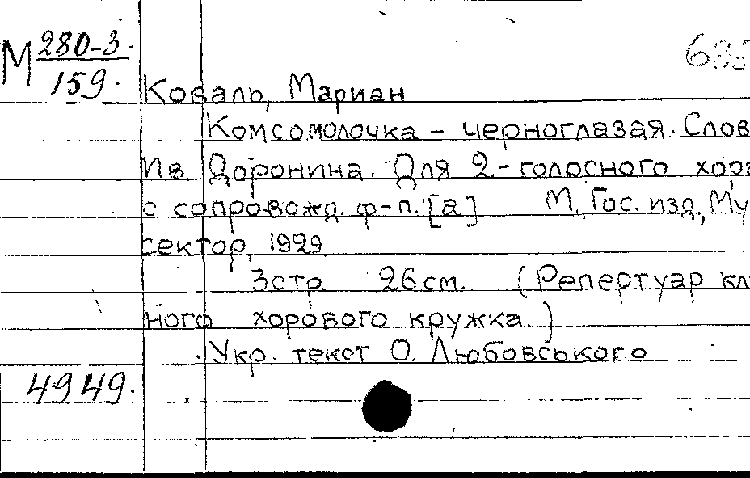 М 280-3.
159.
Коваль, Мариан
Комсомолочка - черноглазая. Слов
Ив Доронина. Для 2-голосного хор
с сопровожд. ф-п. [а] М, Гос. изд, Му
сектор, 1929
3 стр 26 см. (Репертуар кл
ного хорового кружка.)
Укр. текст О. Любовського
4949.